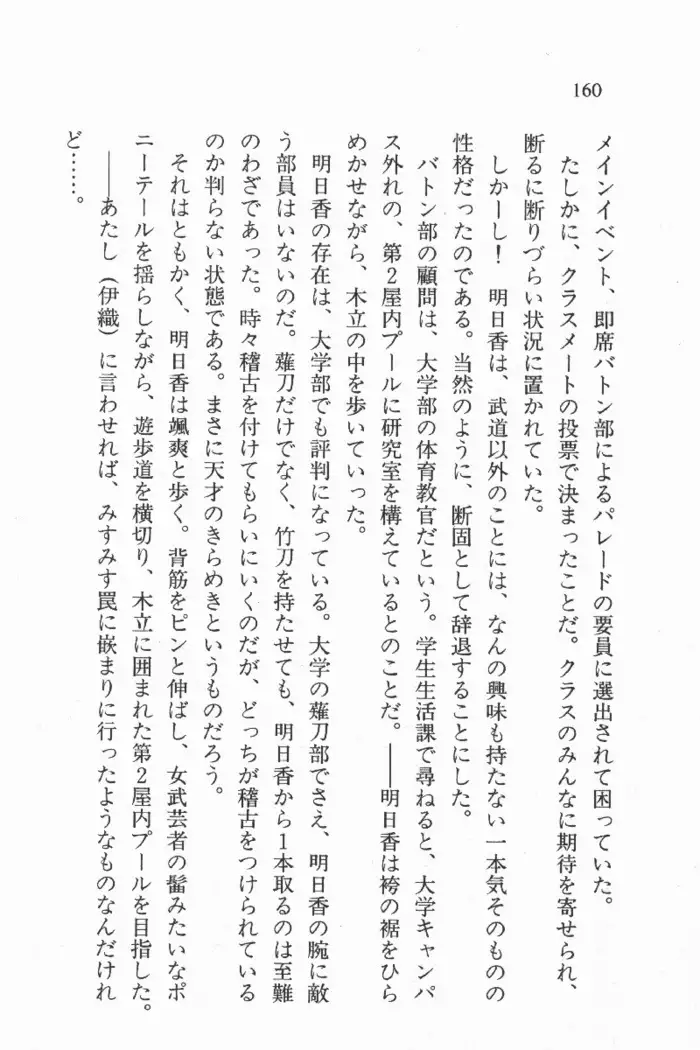 160
メインイベント、即席バトン部によるパレードの要員に選出されて困っていた。
たしかに、クラスメートの投票で決まったことだ。クラスのみんなに期待を寄せられ、
断るに断りづらい状況に置かれていた。
しかーし！　明日香は、武道以外のことには、なんの興味も持たない一本気そのものの
性格だったのである。当然のように、断固として辞退することにした。
バトン部の顧問は、大学部の体育教官だという。学生生活課で尋ねると、大学キャンパ
ス外れの、第2屋内プールに研究室を構えているとのことだ。――明日香は袴の裾をひら
めかせながら、木立の中を歩いていった。
明日香の存在は、大学部でも評判になっている。大学の薙刀部でさえ、明日香の腕に敵
う部員はいないのだ。薙刀だけでなく、竹刀を持たせても、明日香から1本取るのは至難
のわざであった。時々稽古を付けてもらいにいくのだが、どっちが稽古をつけられている
のか判らない状態である。まさに天才のきらめきというものだろう。
それはともかく、明日香は颯爽と歩く。背筋をピンと伸ばし、女武芸者の髷みたいなポ
ニーテールを揺らしながら、遊歩道を横切り、木立に囲まれた第2屋内プールを目指した。
――あたし（伊織）に言わせれば、みすみす罠に嵌まりに行ったようなものなんだけれ
ど……。